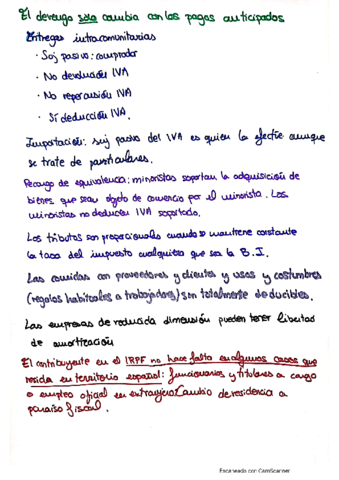 El devengo sólo cambia con los pagos anticipados
Entregas intracomunitarias
· Suj pasivo: comprador
· No devolución IVA
· No repercusión IVA
· Sí deducción IVA.
Importación: suj pasivo del IVA es quien la efectúe aunque
se trate de particulares.
Recargo de equivalencia: minoristas soportan la adquisición de
bienes que sean objeto de comercio por el minorista. Los
minoristas no deducen IVA soportado.
Los tributos son proporcionales cuando se mantiene constante
la tasa del impuesto cualquiera que sea la B.I.
Las comidas con proveedores y clientes y usos y costumbres
(regalos habituales a trabajadores) son totalmente deducibles.
Las empresas de reducida dimensión pueden tener libertad
de amortización
El contribuyente en el IRPF no hace falta en algunos casos que
resida en territorio español: funcionarios y titulares a cargo
o empleo oficial en extranjero/cambio de residencia a
paraíso fiscal.
Escaneado con CamScanner